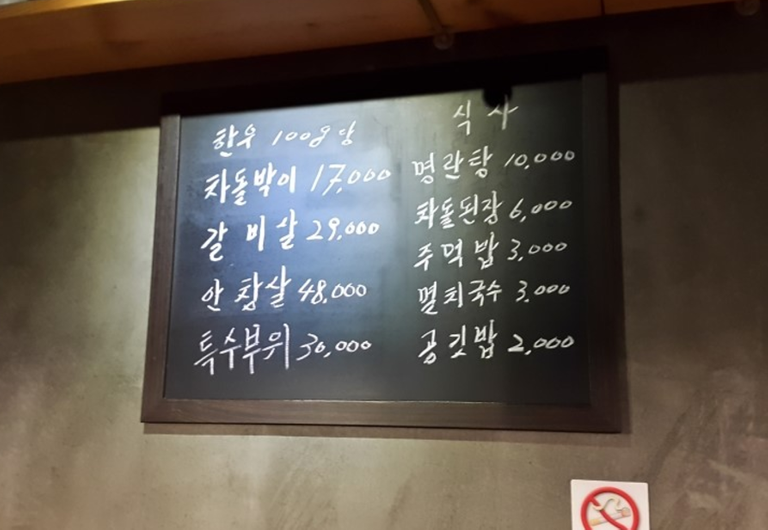 한우 100g당
차돌박이 17,000
갈비살 29,000
안창살 48,000
특수부위 30,000
식사
명란탕 10,000
차돌된장 6,000
주먹밥 3,000
멸치국수 3,000
공깃밥 2,000